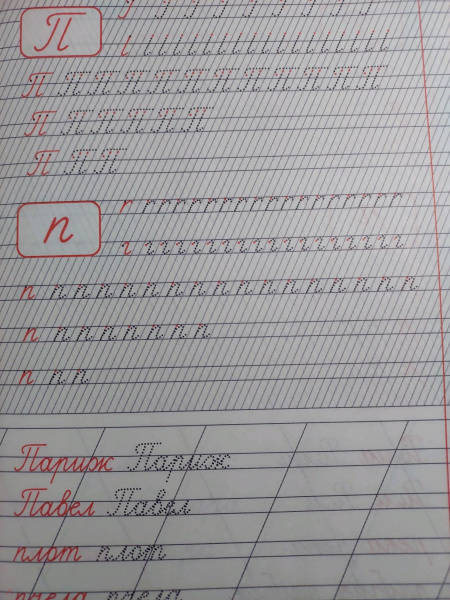 П
П П П П П П П П П П П П
П П П П П П
П П П
п
п п п п п п п п п п п п п п п п п
п п п п п п п п
п п п
Париж Париж
Павел Павел
плот плот
пчела пчела